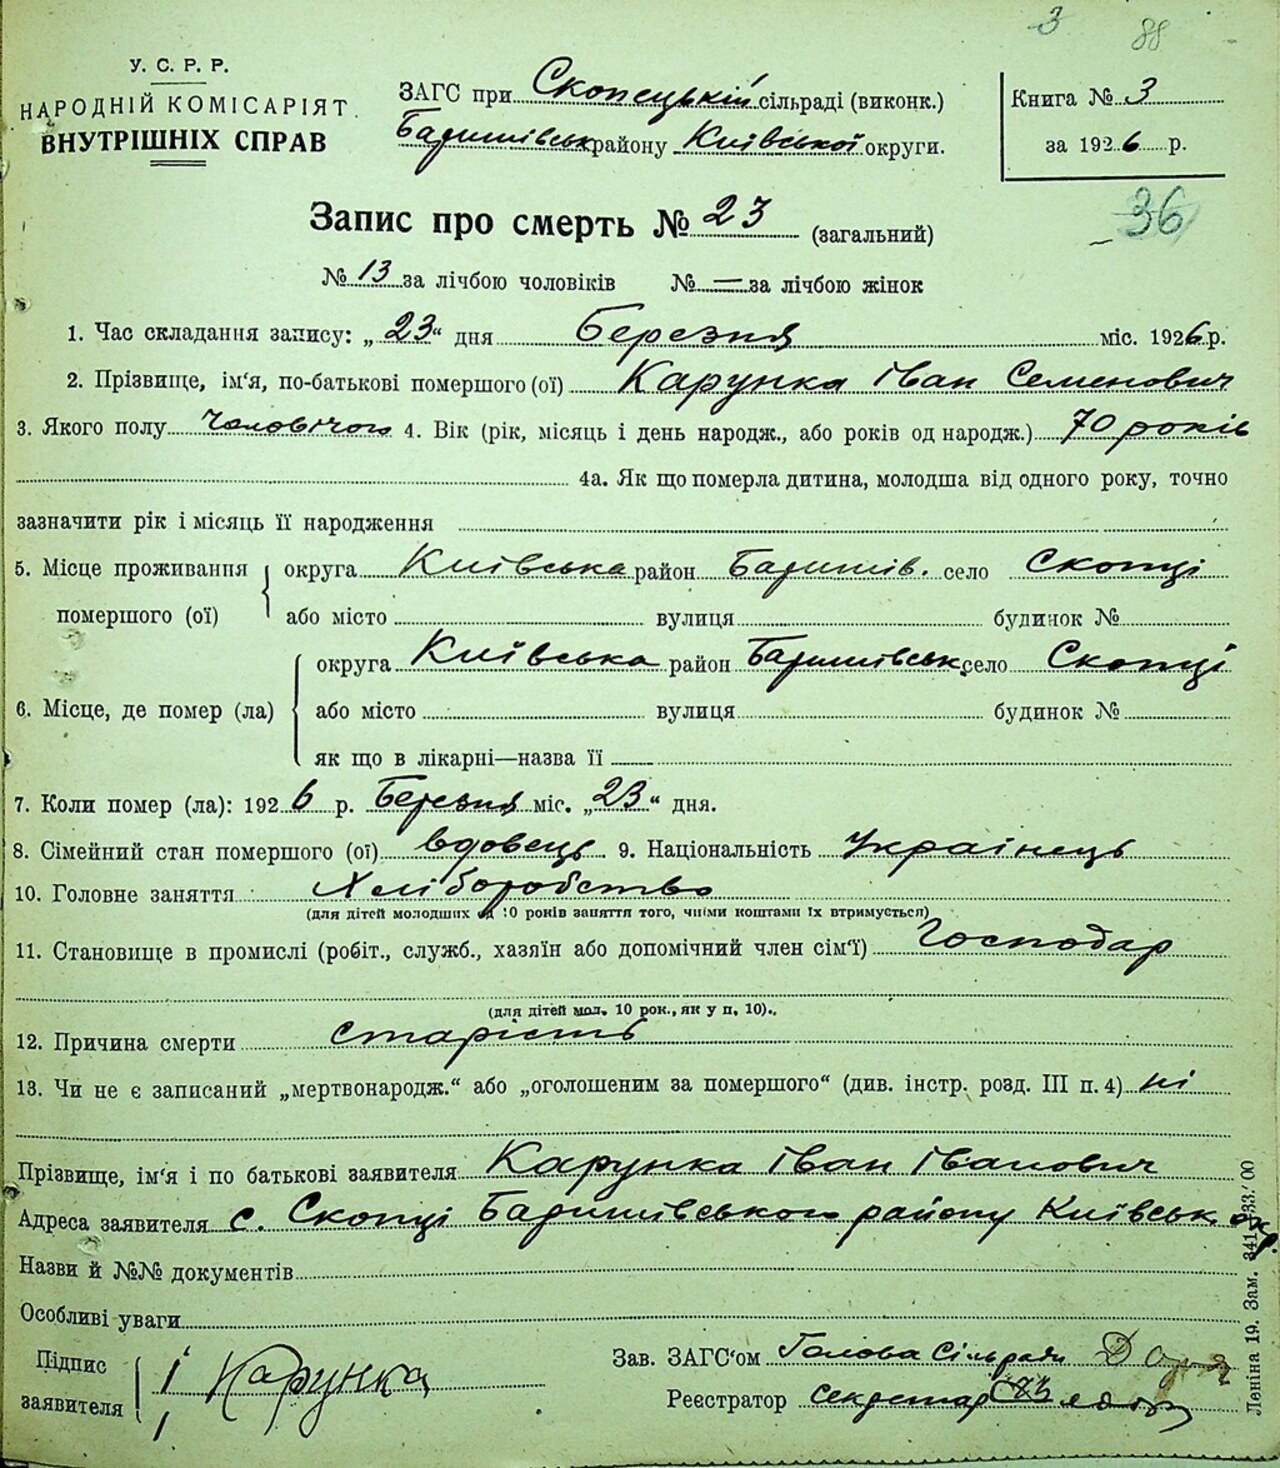 3 88
У. С. Р. Р.
НАРОДНІЙ КОМІСАРІЯТ
ВНУТРІШНІХ СПРАВ
ЗАГС при Скопецькій сільраді (виконк.)
Баришівськ району Київської округи.
Книга № 3
за 1926 р.
36
Запис про смерть № 23 (загальний)
№ 13 за лічбою чоловіків № — за лічбою жінок
1. Час складання запису: „23“ дня Березня міс. 1926 р.
2. Прізвище, ім‘я, по-батькові помершого (ої) Карунка Іван Семенович
3. Якого полу Чоловічого 4. Вік (рік, місяць і день народж., або років од народж.) 70 років
4а. Як що померла дитина, молодша від одного року, точно
зазначити рік і місяць її народження
5. Місце проживання помершого (ої) округа Київська район Баришів. село Скопці
або місто вулиця будинок №
6. Місце, де помер (ла) округа Київська район Баришівськ. село Скопці
або місто вулиця будинок №
як що в лікарні—назва її
7. Коли помер (ла): 1926 р. Березня міс. „23“ дня.
8. Сімейний стан помершого (ої) вдовець 9. Національність Українець
10. Головне заняття Хліборобство
(для дітей молодших од 10 років заняття того, чиїми коштами їх втримується)
11. Становище в промислі (робіт., служб., хазяїн або допомічний член сім‘ї) Господар
(для дітей мол. 10 рок., як у п. 10).
12. Причина смерти старість
13. Чи не є записаний „мертвонародж.“ або „оголошеним за помершого“ (див. інстр. розд. III п. 4) ні
Прізвище, ім‘я і по батькові заявителя Карунка Іван Іванович
Адреса заявителя с. Скопці Баришівського району Київськ. окр.
Назви й №№ документів
Особливі уваги
Підпис заявителя І Карунка
Зав. ЗАГС‘ом Голова Сільради
Реєстратор секретар
Леніна 19. Зам.